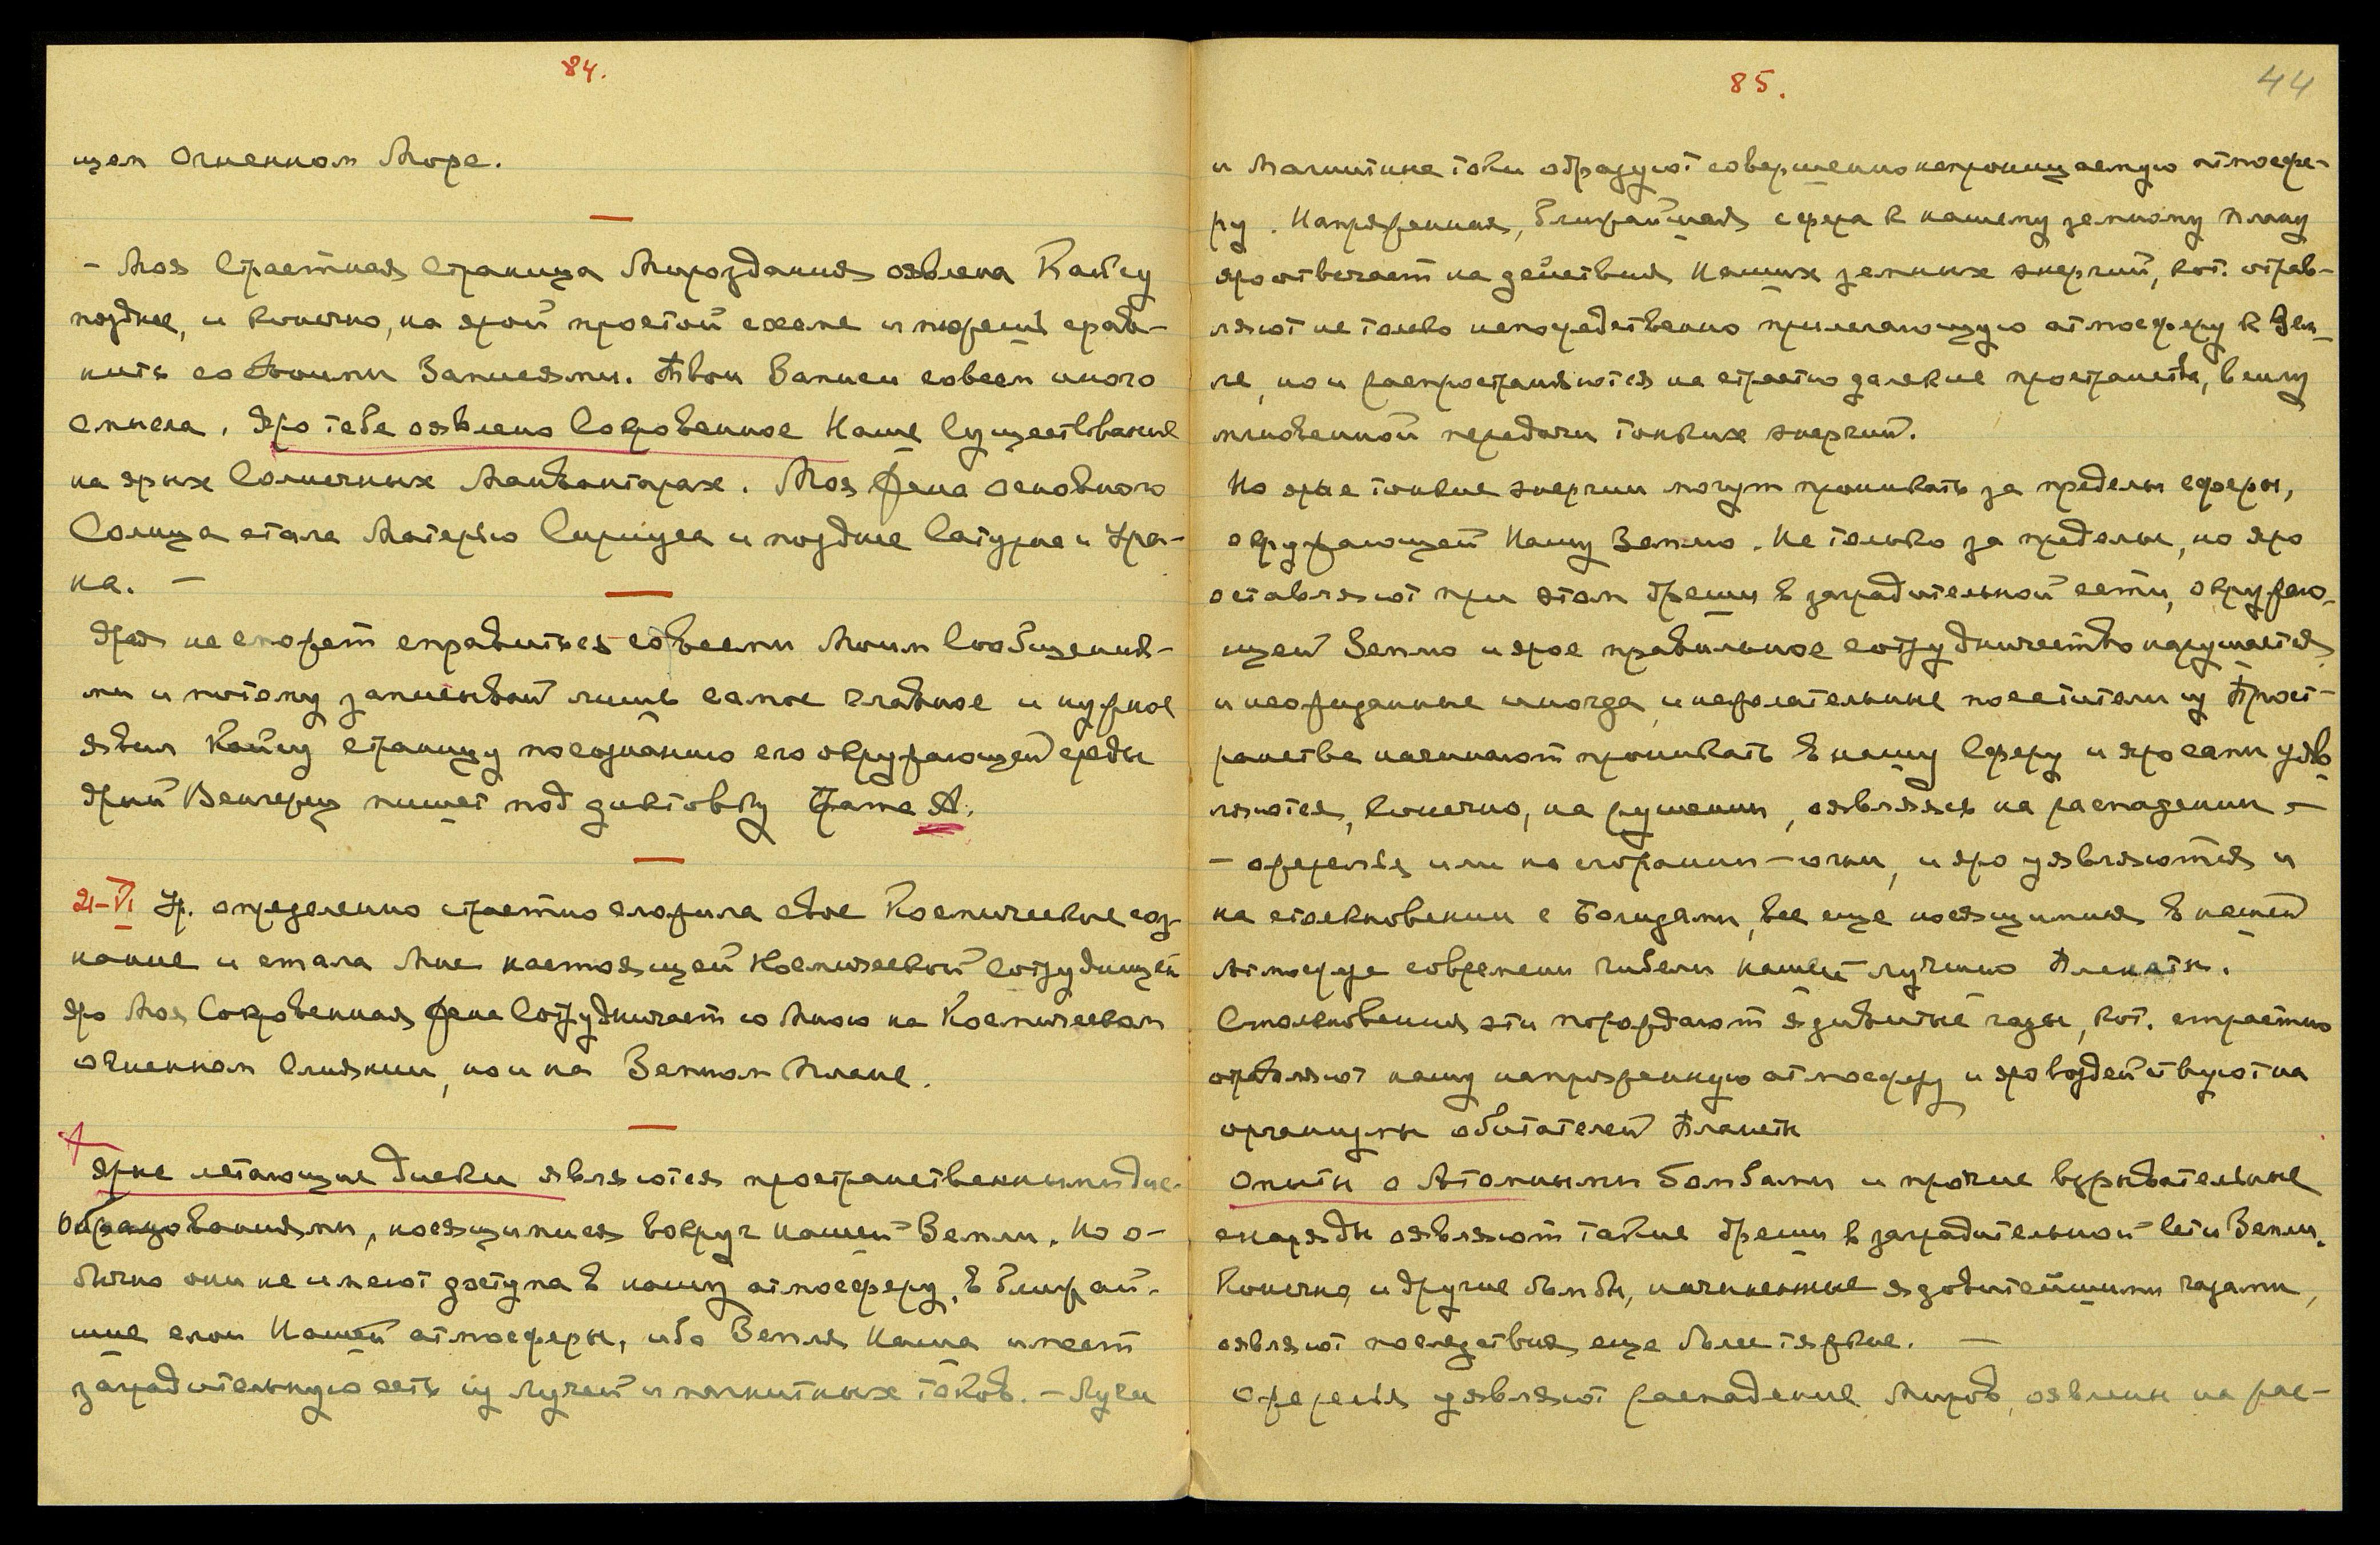 84.
щем Огненном Море.
- Моя Страстная Страница Мироздания оявлена Кайсу
позднее, и конечно, на ярой простой схеме и можешь срав-
нить со своими Записями. Твои Записи совсем иного
смысла. Яро тебе оявлено Сокровенное Наше Существование
на ярых Солнечных Манвантарах. Моя Жена Основного
Солнца стала Матерью Сириуса и позднее Сатурна и Ура-
на. —
Яро не сможет справиться со всеми Моими Сообщения-
ми и потому записывай лишь самое главное и нужное
явил Кайсу страницу по сознанию его окружающей среды
Ярый Венгерец пишет под диктовку Брата А.
21-VI Ур. определенно страстно сложила свое Космическое соз-
нание и стала Мне настоящей Космической Сотрудницей
Яро Моя Сокровенная Жена Сотрудничает со Мною на Космическом
огненном Слиянии, но и на Земном плане.
Ярые летающие диски являются пространственными
образованиями, носящимися вокруг нашей Земли. Но о-
бычно они не имеют доступа в нашу атмосферу, в ближай-
шие слои Нашей атмосферы, ибо Земля Наша имеет
заградительную сеть из лучей и магнитных токов. — Лучи
85.
44
и Магнитные токи образуют совершенно непроницаемую атмосфе-
ру. Напряженная, ближайшая сфера к нашему земному плану
яро отвечает на действия Наших земных энергий, кот. отрав-
ляют не только непосредственно прилегающую атмосферу к Зем-
ле, но и распространяются на страстно далекие пространства, в силу
мгновенной передачи тонких энергий.
Но ярые тонкие энергии могут проникать за пределы сферы,
окружающей Нашу Землю. Не только за пределы, но яро
оставляют при этом бреши в заградительной сети, окружаю-
щей Землю и ярое правильное сотрудничество нарушается
и неожиданные иногда и нежелательные посетители из Прост-
ранства начинают проникать в нашу Сферу и яро сами уяв-
ляются, конечно, на рушении, оявляясь на распадении —
— ожерелья или на сгорании — огни, и яро уявляются и
на столкновении с Болидами, все еще носящимися в нашей
Атмосфере со времени гибели нашей лучшей Планеты.
Столкновения эти порождают ядовитые газы, кот. страстно
отравляют нашу напряженную атмосферу и яро воздействуют на
организмы обитателей Планеты
Опыты с Атомными бомбами и прочие взрывательные
снаряды оявляют такие бреши в заградительной Сети Земли.
Конечно, и другие бомбы, начиненные ядовитейшими газами,
оявляют последствия, еще более тяжкие. —
Ожерелья уявляют распадение Миров, оявлены на рас-